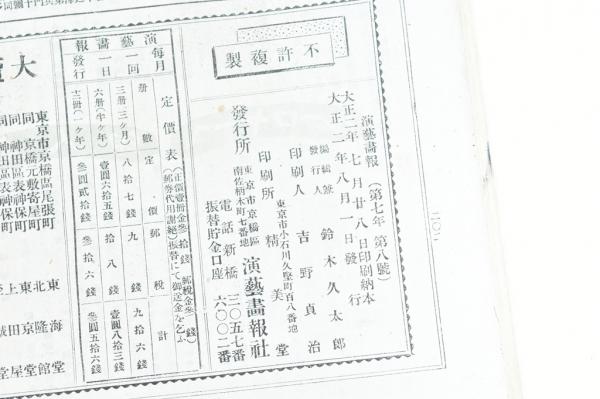 不許複製
演藝畫報（第七年第八號）
大正二年七月廿八日印刷納本
大正二年八月一日發行
編輯兼發行人 鈴木久太郎
印刷人 吉野貞治
東京市小石川久堅町百八番地
印刷所 精美堂
東京市京橋區南佐柄木町七番地
發行所 演藝畫報社
電話新橋三〇五七番
振替貯金口座六〇〇二番
演藝畫報
每月一回一日發行
定價表
（正價壹册金參拾錢郵稅金參錢）
（郵券代用謝絕）振替にて御送金を乞ふ
册數 定價 郵稅 計
三册（三ヶ月） 八拾七錢 九錢 九拾六錢
六册（半ヶ年） 壹圓六拾五錢 拾八錢 壹圓八拾三錢
十二册（一ヶ年） 參圓貳拾錢 參拾六錢 參圓五拾六錢
大
東京市京橋區尾張町
同京橋元數寄屋町
同神田區表神保町
同神田區表神保町
東海堂
北隆館
東京堂